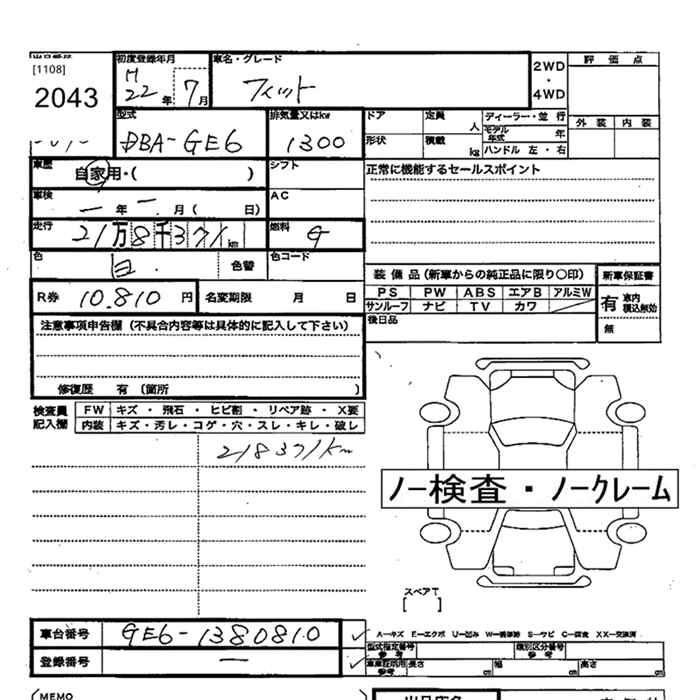 [1108]
2043
初度登録年月
H
22年 7月
車名・グレード
フィット
2WD
・
4WD
評 価 点
外 装 内 装
型式
DBA-GE6
排気量又はkw
1300
ドア
定員
人
ディーラー・並 行
モデル年式
年
形状
積載
kg
ハンドル 左・右
車歴
自家用・( )
シフト
正常に機能するセールスポイント
車検
一 年 一 月( 日)
AC
走行
21万8千371km
燃料
G
色
白.
色替
色コード
装 備 品 (新車からの純正品に限り○印)
新車保証書
PS PW ABS エアB アルミW
サンルーフ ナビ TV カワ
有
車内積込無効
無
R券
10.810 円
名変期限 月 日
後日品
注意事項申告欄 (不具合内容等は具体的に記入して下さい)
修復歴 有 (箇所 )
検査員
記入欄
FW キズ ・ 飛石 ・ ヒビ割 ・ リペア跡 ・ X要
内装 キズ・汚レ・コゲ・穴・スレ・キレ・破レ
218371km
ノー検査・ノークレーム
スペアT
[ ]
車台番号
GE6-1380810
A-キズ E-エクボ U-凹み
登録番号
一
型式指定番号
参考
類別区分番号
参考
長さ
cm
幅
cm
高さ
cm
(MEMO